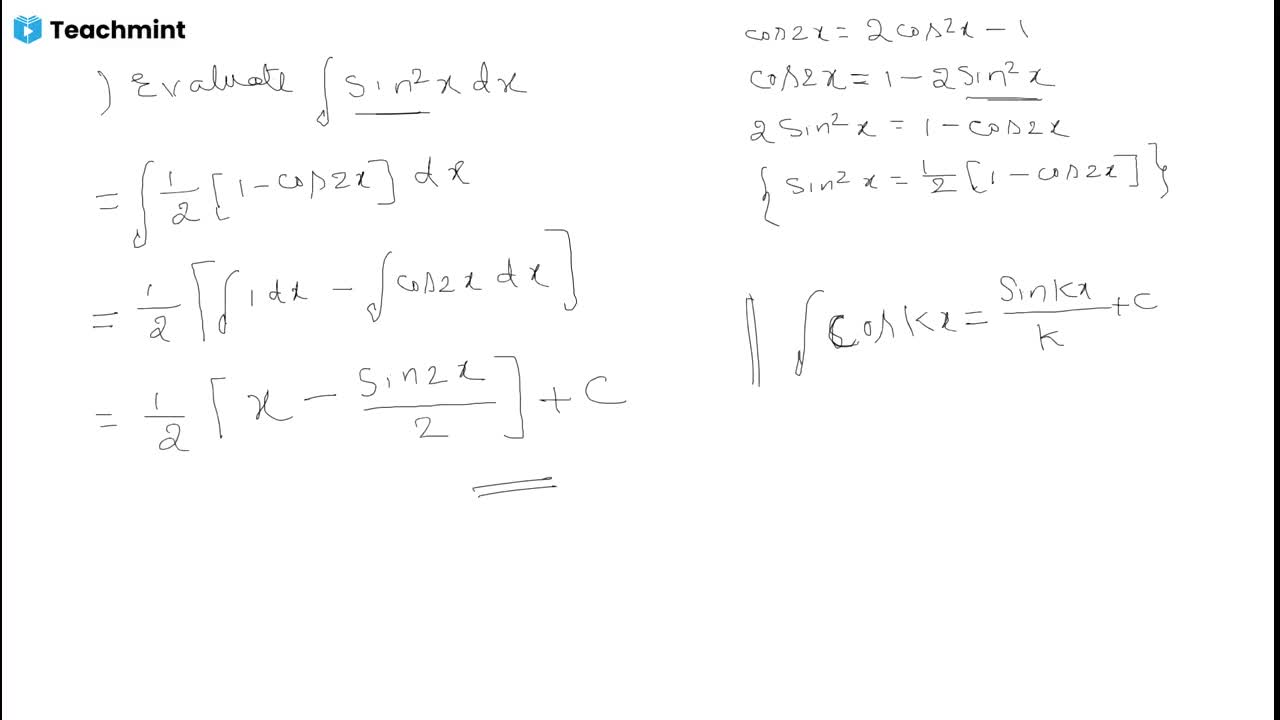 Teachmint
) Evaluate ∫ sin²x dx
= ∫ 1/2 [1 - cos2x] dx
= 1/2 [∫ 1 dx - ∫ cos2x dx]
= 1/2 [x - sin2x/2] + C
cos2x = 2cos²x - 1
cos2x = 1 - 2sin²x
2sin²x = 1 - cos2x
{sin²x = 1/2 [1 - cos2x]}
|| ∫ coskx = sinkx/k + c